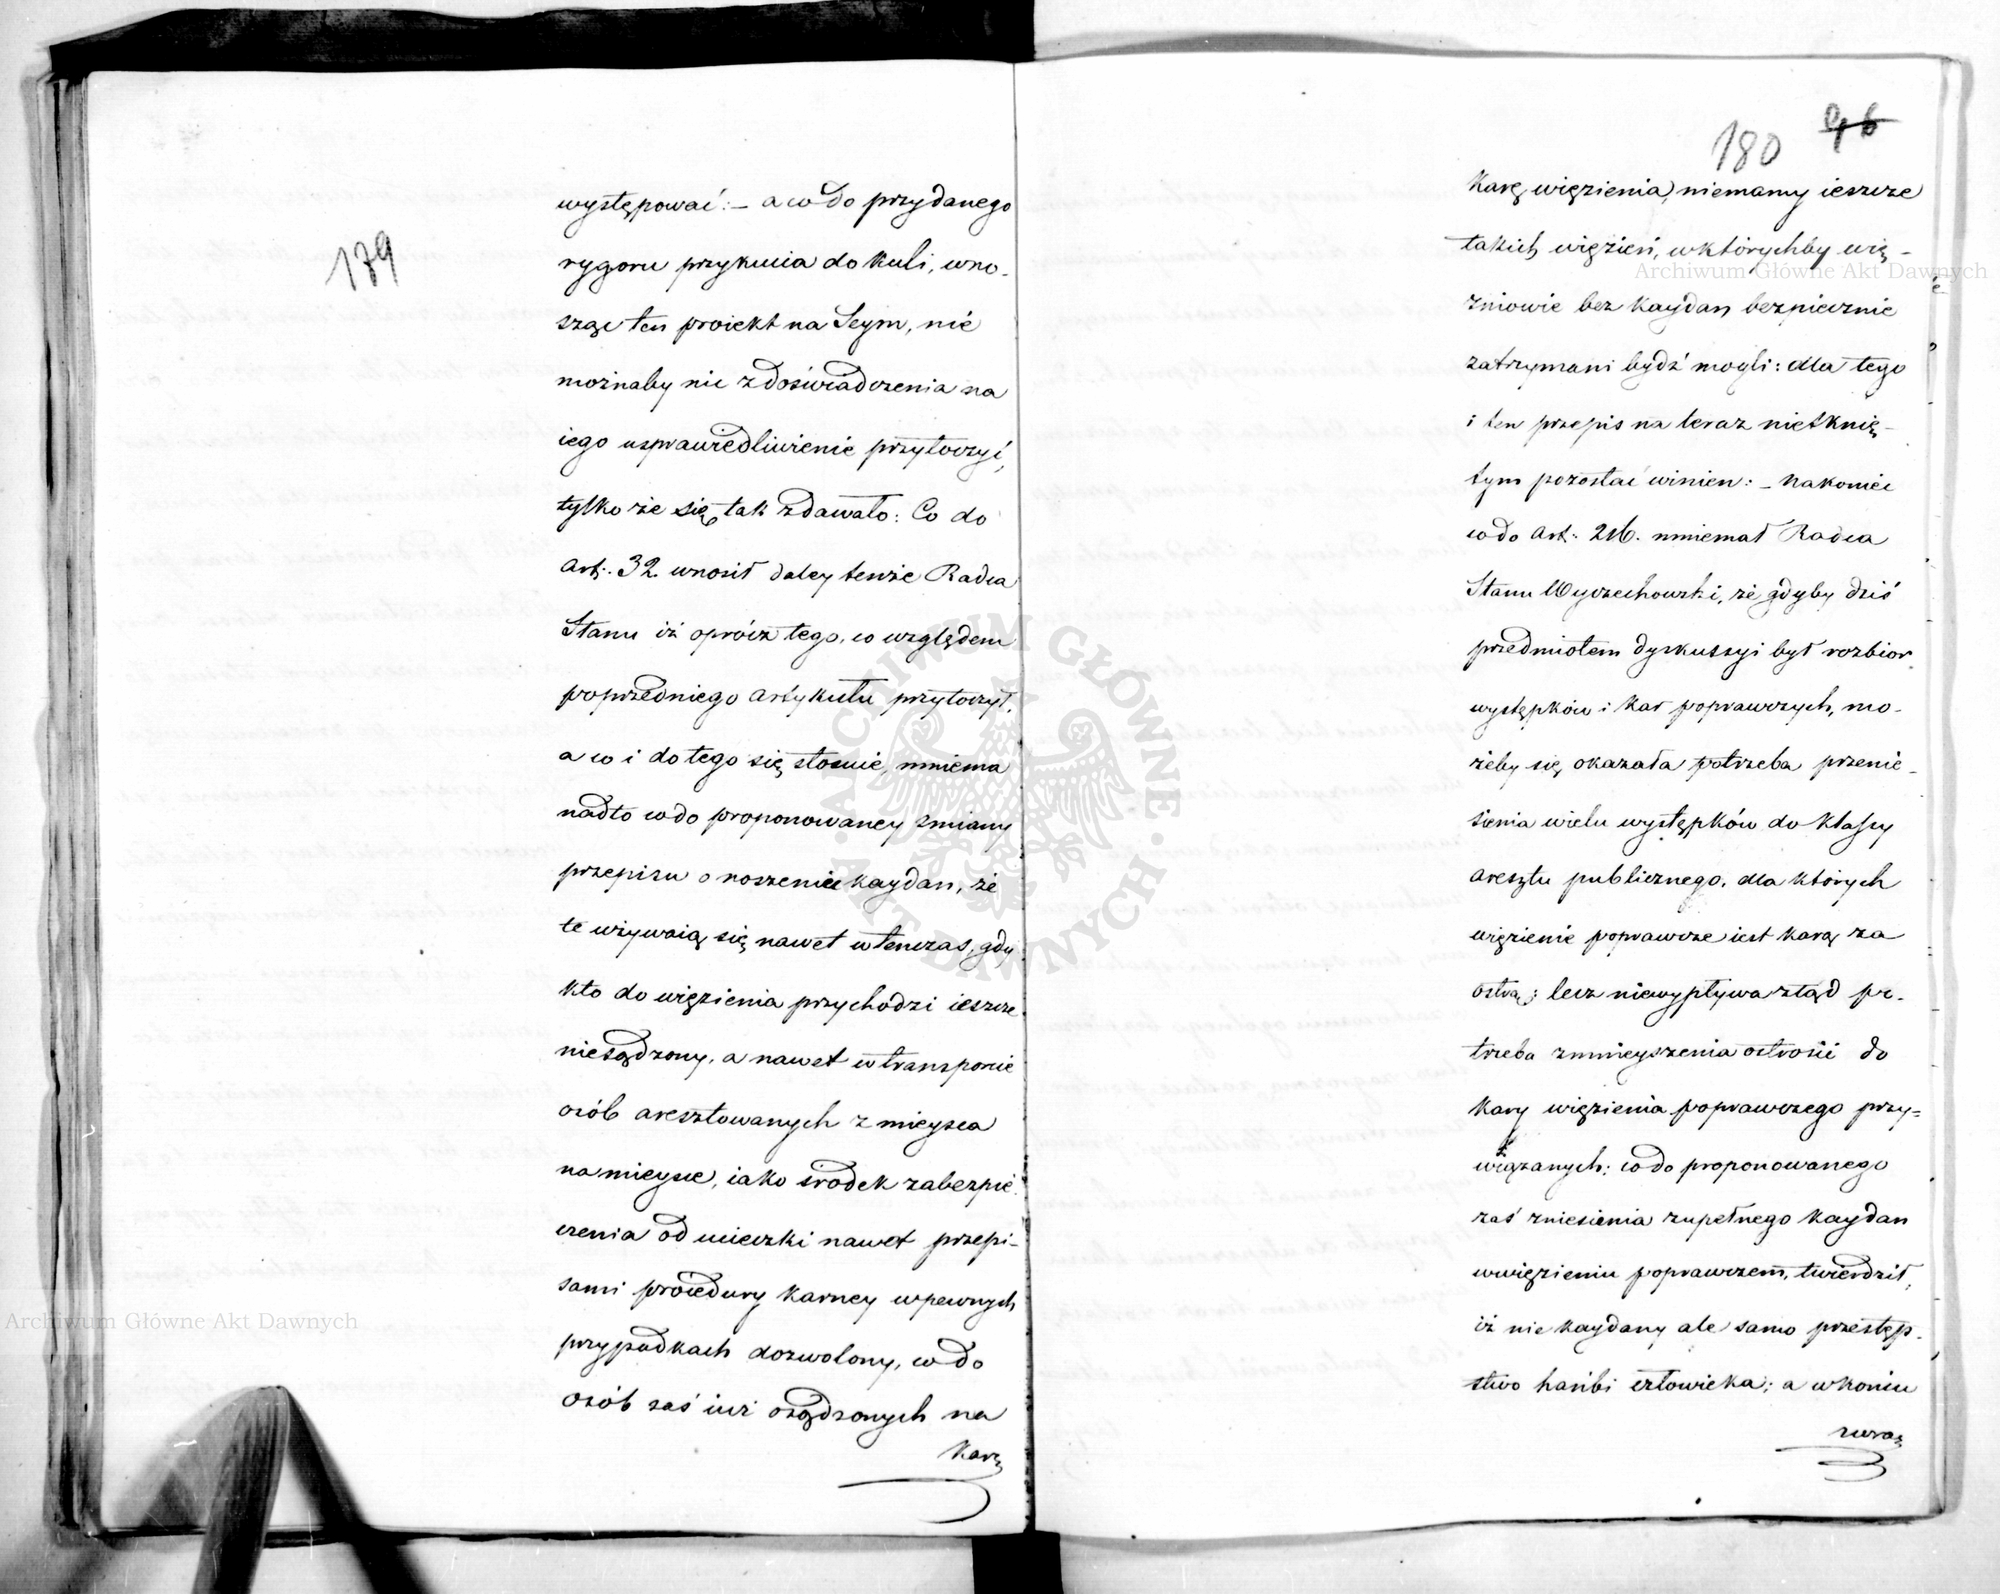 179
występować: – a co do przydanego
rygoru przykucia do kuli, wno-
sząc ten proiekt na Seym, nie
możnaby nic z doświadczenia na
iego usprawiedliwienie przytoczyć,
tylko że się tak zdawało: Co do
Art: 32. wnosił daley tenże Radca
Stanu iż oprócz tego, co względem
poprzedniego artykułu przytoczył,
a co i do tego się stosuie, mniema
nadto co do proponowaney zmiany
przepisu o noszenie kaydan, że
te używaią się nawet wtenczas, gdy
kto do więzienia przychodzi ieszcze
nieosądzony, a nawet w transporcie
osób aresztowanych z mieysca
na mieysce, iako środek zabezpie-
czenia od ucieczki nawet przepi-
sami procedury karney w pewnych
przypadkach dozwolony, co do
osób zaś iuż osądzonych na
karę
180 96
karę więzienia, niemamy ieszcze
takich więzień, w którychby wię-
zniowie bez kaydan bezpiecznie
zatrzymani bydź mogli: dla tego
i ten przepis na teraz nietknię-
tym pozostać winien: – nakoniec
co do Art: 216. mniemał Radca
Stanu Wyczechowski, że gdyby dziś
przedmiotem dyskussyi był rozbior
występków i kar poprawczych, mo-
żeby się okazała potrzeba przenie-
sienia wielu występków do klassy
aresztu publicznego, dla których
więzienie poprawcze iest karą za
ostrą; lecz niewypływa ztąd po-
trzeba zmnieyszenia ostrości do
kary więzienia poprawczego przy-
wiązanych: co do proponowanego
zaś zniesienia zupełnego kaydan
w więzieniu poprawczem, twierdził,
iż nie kaydany ale samo przestęp-
stwo hańbi człowieka; a w końcu
Archiwum Główne Akt Dawnych
Archiwum Główne Akt Dawnych
ARCHIWUM GŁÓWNE AKT DAWNYCH